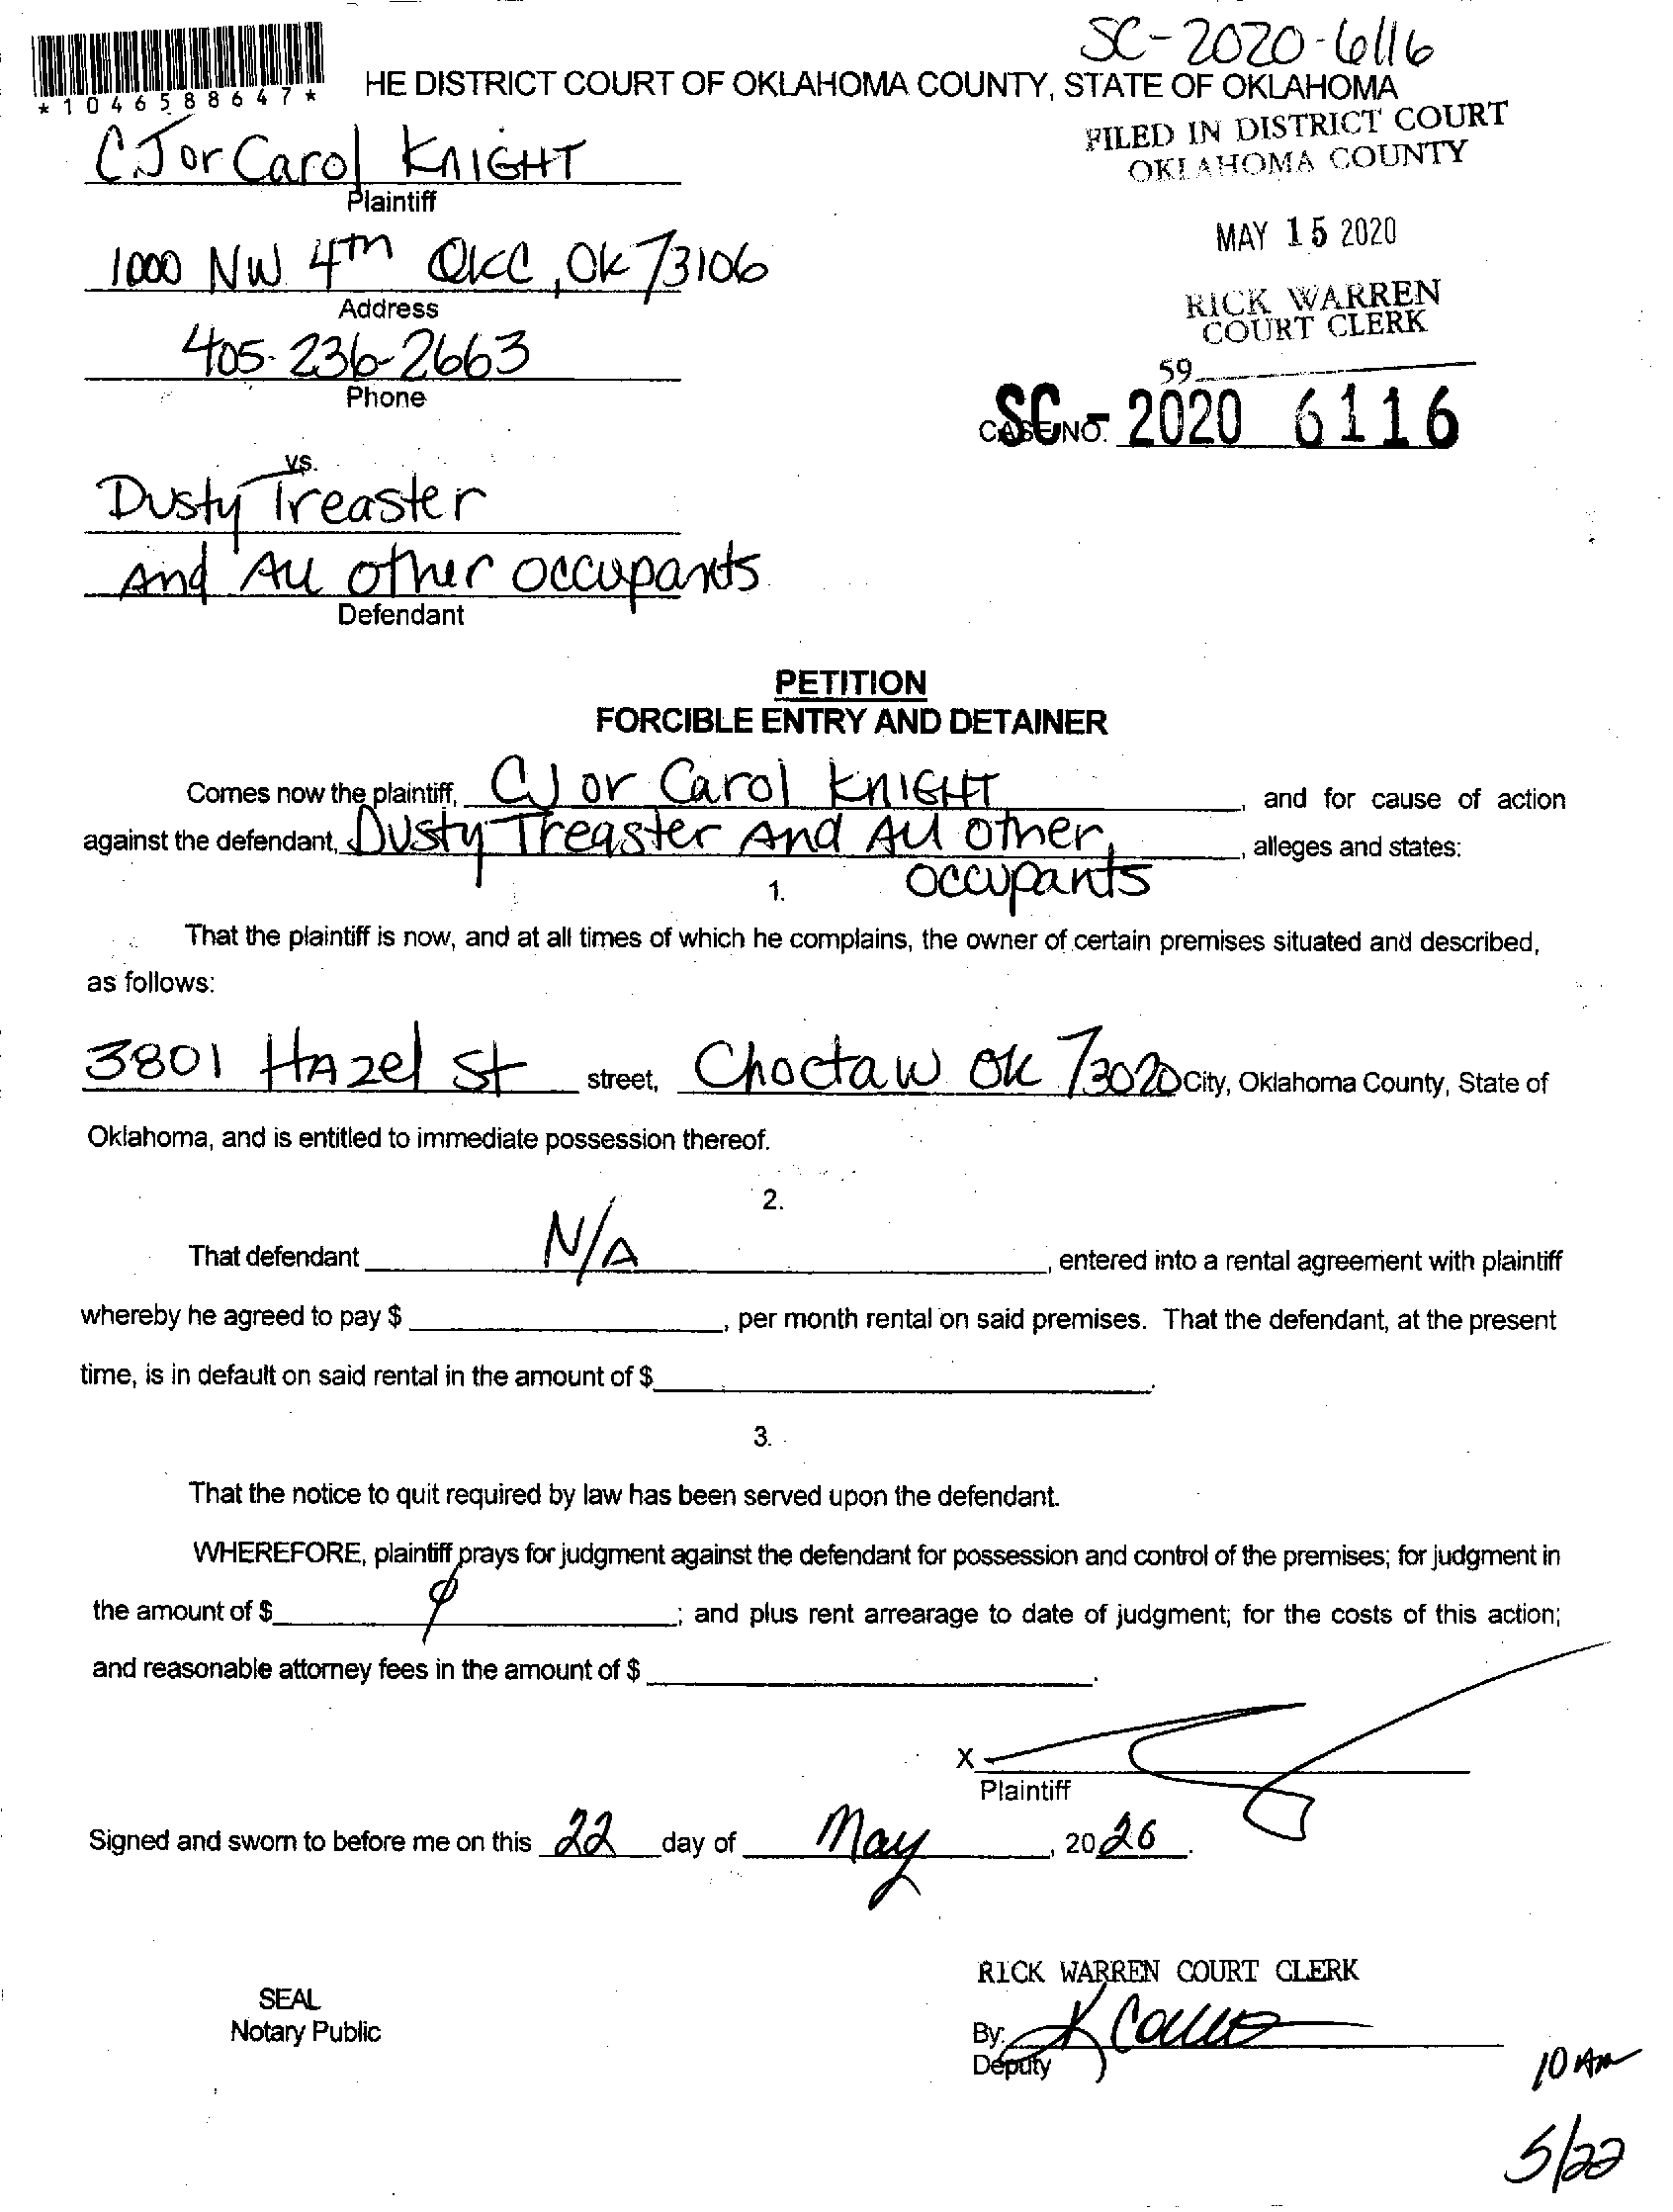 SC-2020-6116
*1046588647*
HE DISTRICT COURT OF OKLAHOMA COUNTY, STATE OF OKLAHOMA
FILED IN DISTRICT COURT
OKLAHOMA COUNTY
CJ or Carol KNIGHT
Plaintiff
MAY 15 2020
1000 NW 4TH OKC, OK 73106
Address
RICK WARREN
COURT CLERK
405-236-2663
Phone
59
CASE NO. SC - 2020 6116
vs.
Dusty Treaster
And All other occupants
Defendant
PETITION
FORCIBLE ENTRY AND DETAINER
Comes now the plaintiff, CJ or Carol KNIGHT, and for cause of action
against the defendant, Dusty Treaster And All other, alleges and states:
occupants
1.
That the plaintiff is now, and at all times of which he complains, the owner of certain premises situated and described,
as follows:
3801 HAzel St street, Choctaw OK 73020 City, Oklahoma County, State of
Oklahoma, and is entitled to immediate possession thereof.
2.
That defendant N/A, entered into a rental agreement with plaintiff
whereby he agreed to pay $ , per month rental on said premises. That the defendant, at the present
time, is in default on said rental in the amount of $ .
3.
That the notice to quit required by law has been served upon the defendant.
WHEREFORE, plaintiff prays for judgment against the defendant for possession and control of the premises; for judgment in
the amount of $ ; and plus rent arrearage to date of judgment; for the costs of this action;
and reasonable attorney fees in the amount of $ .
X
Plaintiff
Signed and sworn to before me on this 22 day of May, 2020.
RICK WARREN COURT CLERK
SEAL
Notary Public
By:
Deputy
10 AM
5/22